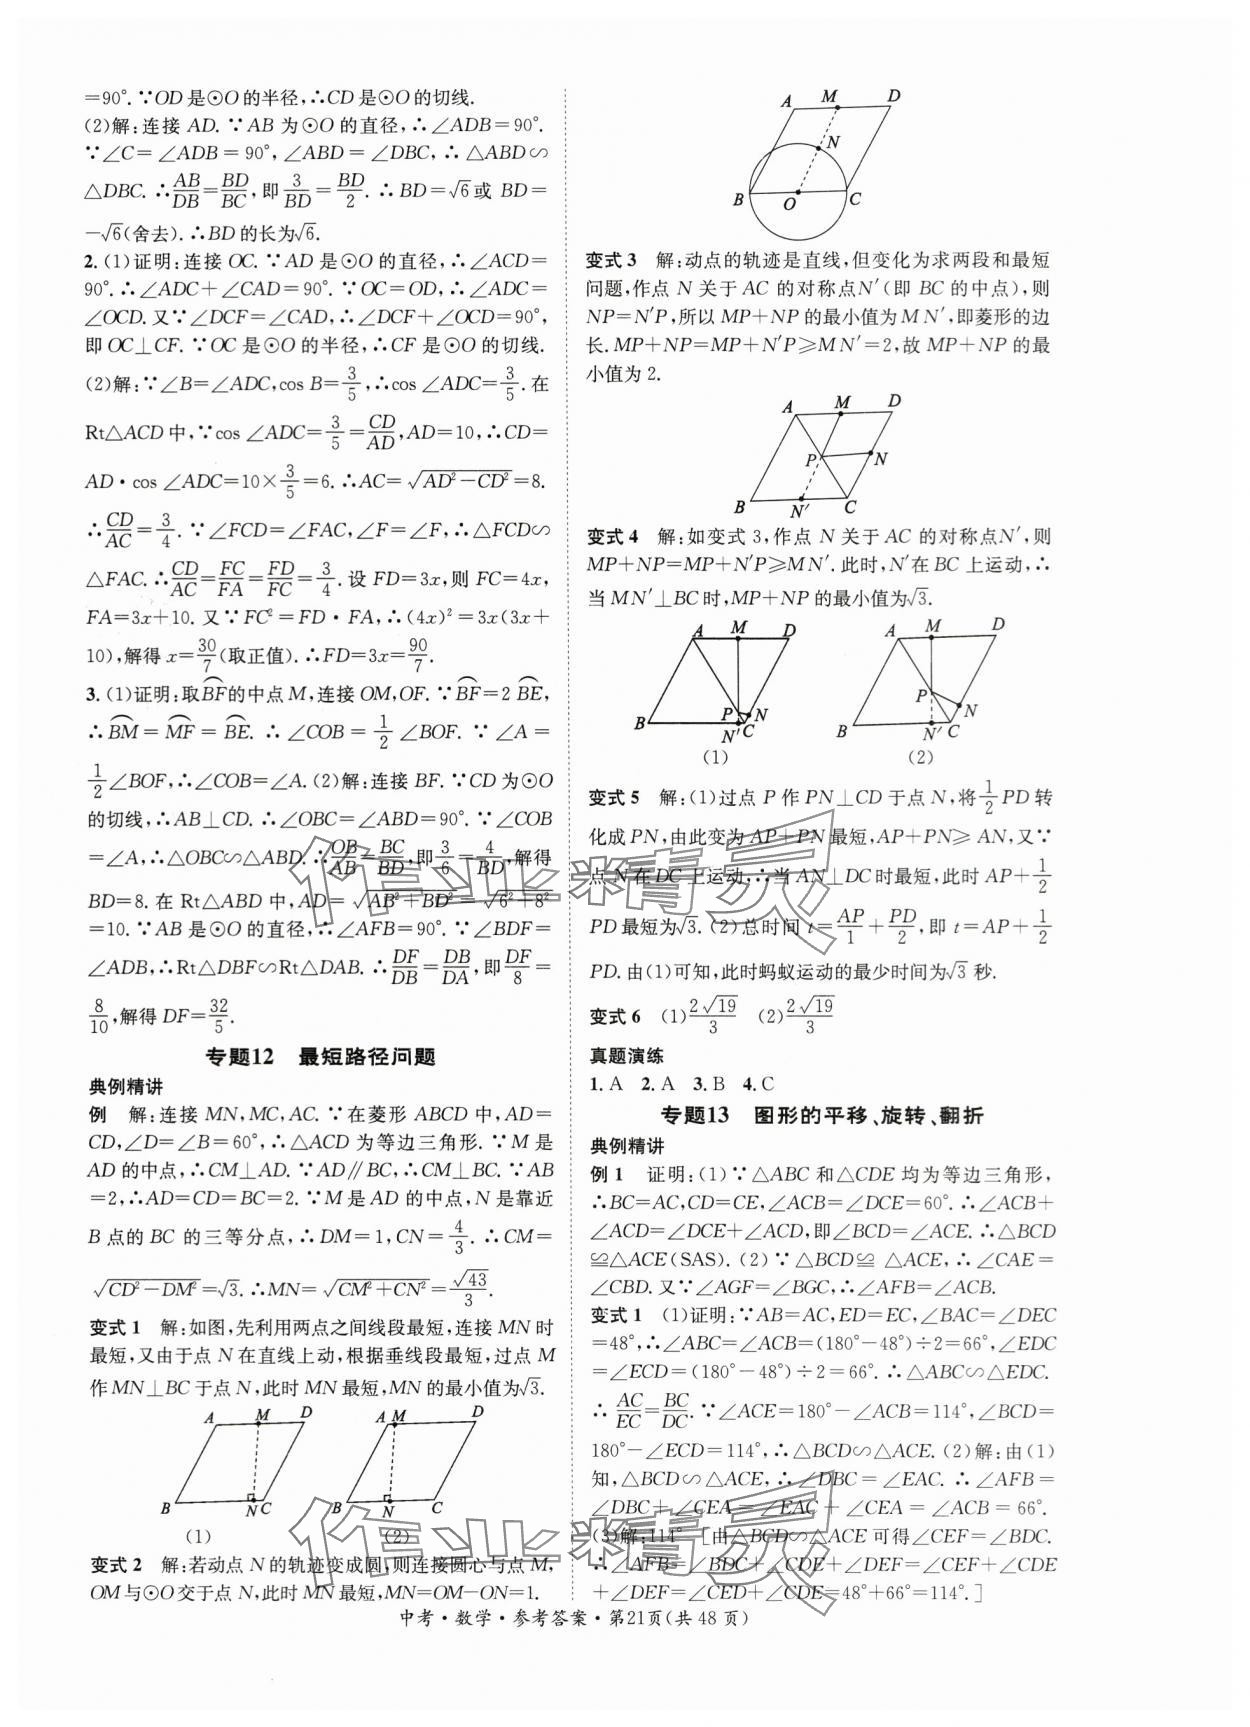 =90°. ∵OD 是⊙O 的半径, ∴CD 是⊙O 的切线.
(2)解:连接 AD. ∵AB 为⊙O 的直径, ∴∠ADB=90°.
∵∠C=∠ADB=90°, ∠ABD=∠DBC, ∴△ABD∽
△DBC. ∴AB/DB=BD/BC, 即 3/BD=BD/2. ∴BD=√6或 BD=
-√6(舍去). ∴BD 的长为√6.
2. (1)证明:连接 OC. ∵AD 是⊙O 的直径, ∴∠ACD=
90°. ∴∠ADC+∠CAD=90°. ∵OC=OD, ∴∠ADC=
∠OCD. 又∵∠DCF=∠CAD, ∴∠DCF+∠OCD=90°,
即 OC⊥CF. ∵OC 是⊙O 的半径, ∴CF 是⊙O 的切线.
(2)解:∵∠B=∠ADC, cos B=3/5, ∴cos ∠ADC=3/5. 在
Rt△ACD 中, ∵cos ∠ADC=3/5=CD/AD, AD=10, ∴CD=
AD·cos ∠ADC=10×3/5=6. ∴AC=√(AD²-CD²)=8.
∴CD/AC=3/4. ∵∠FCD=∠FAC, ∠F=∠F, ∴△FCD∽
△FAC. ∴CD/AC=FC/FA=FD/FC=3/4. 设 FD=3x, 则 FC=4x,
FA=3x+10. 又∵FC²=FD·FA, ∴(4x)²=3x(3x+
10), 解得 x=30/7(取正值). ∴FD=3x=90/7.
3. (1)证明:取⌒BF的中点 M, 连接 OM, OF. ∵⌒BF=2 ⌒BE,
∴⌒BM=⌒MF=⌒BE. ∴∠COB=1/2∠BOF. ∵∠A=
1/2∠BOF, ∴∠COB=∠A. (2)解:连接 BF. ∵CD 为⊙O
的切线, ∴AB⊥CD. ∴∠OBC=∠ABD=90°. ∵∠COB
=∠A, ∴△OBC∽△ABD. ∴OB/AB=BC/BD, 即3/6=4/BD, 解得
BD=8. 在 Rt△ABD 中, AD=√(AB²+BD²)=√(6²+8²)
=10. ∵AB 是⊙O 的直径, ∴∠AFB=90°. ∵∠BDF=
∠ADB, ∴Rt△DBF∽Rt△DAB. ∴DF/DB=DB/DA, 即DF/8=
8/10, 解得 DF=32/5.
专题12 最短路径问题
典例精讲
例 解:连接 MN, MC, AC. ∵在菱形 ABCD 中, AD=
CD, ∠D=∠B=60°, ∴△ACD 为等边三角形. ∵M 是
AD 的中点, ∴CM⊥AD. ∵AD∥BC, ∴CM⊥BC. ∵AB
=2, ∴AD=CD=BC=2. ∵M 是 AD 的中点, N 是靠近
B 点的 BC 的三等分点, ∴DM=1, CN=4/3. ∴CM=
√(CD²-DM²)=√3. ∴MN=√(CM²+CN²)=√43/3.
变式 1 解:如图,先利用两点之间线段最短,连接 MN 时
最短,又由于点 N 在直线上动,根据垂线段最短,过点 M
作MN⊥BC于点 N,此时 MN 最短, MN 的最小值为√3.
A M D
B N C
(1)
A M D
B N C
(2)
变式 2 解:若动点 N 的轨迹变成圆,则连接圆心与点 M,
OM 与⊙O 交于点 N,此时 MN 最短, MN=OM-ON=1.
A M D
N
B O C
变式 3 解:动点的轨迹是直线,但变化为求两段和最短
问题,作点 N 关于 AC 的对称点N′(即 BC 的中点),则
NP=N′P,所以 MP+NP 的最小值为 MN′,即菱形的边
长. MP+NP=MP+N′P≥MN′=2,故 MP+NP 的最
小值为 2.
A M D
P N
B N′ C
变式 4 解:如变式 3,作点 N 关于 AC 的对称点N′,则
MP+NP=MP+N′P≥MN′.此时, N′在 BC 上运动, ∴
当 MN′⊥BC时, MP+NP 的最小值为√3.
A M D
P N
B N′ C
(1)
A M D
P N
B N′ C
(2)
变式 5 解:(1)过点 P 作 PN⊥CD 于点 N,将1/2PD 转
化成 PN,由此变为 AP+PN 最短, AP+PN≥AN,又∵
点 N 在 DC 上运动, ∴当 AN⊥DC时最短,此时 AP+1/2
PD 最短为√3. (2)总时间 t=AP/1+PD/2,即 t=AP+1/2
PD. 由(1)可知,此时蚂蚁运动的最少时间为√3 秒.
变式 6 (1)2√19/3 (2)2√19/3
真题演练
1. A 2. A 3. B 4. C
专题13 图形的平移、旋转、翻折
典例精讲
例 1 证明:(1)∵△ABC 和△CDE 均为等边三角形,
∴BC=AC, CD=CE, ∠ACB=∠DCE=60°. ∴∠ACB+
∠ACD=∠DCE+∠ACD,即∠BCD=∠ACE. ∴△BCD
≌△ACE(SAS). (2)∵△BCD≌△ACE, ∴∠CAE=
∠CBD. 又∵∠AGF=∠BGC, ∴∠AFB=∠ACB.
变式 1 (1)证明:∵AB=AC, ED=EC, ∠BAC=∠DEC
=48°, ∴∠ABC=∠ACB=(180°-48°)÷2=66°, ∠EDC
=∠ECD=(180°-48°)÷2=66°. ∴△ABC∽△EDC.
∴AC/EC=BC/DC. ∵∠ACE=180°-∠ACB=114°, ∠BCD=
180°-∠ECD=114°, ∴△BCD∽△ACE. (2)解:由(1)
知, △BCD∽△ACE, ∴∠DBC=∠EAC. ∴∠AFB=
∠DBC+∠CEA=∠EAC+∠CEA=∠ACB=66°.
(3)解:114° [由△BCD∽△ACE 可得∠CEF=∠BDC.
∴∠AFB=∠BDC+∠CDE+∠DEF=∠CEF+∠CDE
+∠DEF=∠CED+∠CDE=48°+66°=114°.]
中考·数学·参考答案·第21页(共 48 页)
作业精灵
作业精灵